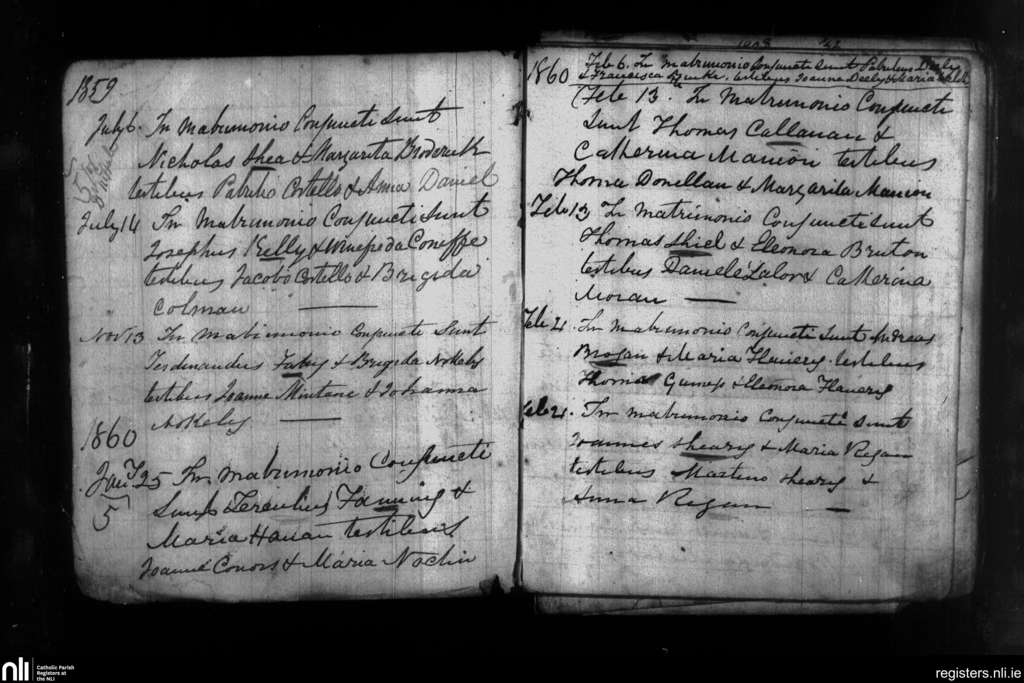 1859
July 6. In Matrimonio Conjuncti Sunt
Nicholas Shea & Margarita Broderick
testibus Patritio Costello & Anna Daniel
July 14 In Matrimonio Conjuncti Sunt
Josephus Kelly & Winefreda
testibus Jacobo Costello & Brigida
Colman
Nov 13 In Matrimonio Conjuncti Sunt
Ferdinandus Fahy & Brigida
testibus Joanne & Johanna
1860
Jany 25 In Matrimonio Conjuncti
5
Sunt Fanning &
Maria testibus
Joanne Conors & Maria
1860 Feb 6. In Matrimonio Conjuncti Sunt Patritius Deely
& Francisca Burke. testibus Joanne Deely & Maria
Feb 13th. In Matrimonio Conjuncti
Sunt Thomas Callanan &
Catherina Manion testibus
Thoma Donellan & Margarita Manion
Feb 13 In Matrimonio Conjuncti Sunt
Thomas Shiel & Eleonora Bruton
testibus Daniele Lalor & Catherina
Moran
Feb 21. In Matrimonio Conjuncti Sunt Andreas
Brogan & Maria testibus
Thoma & Eleonora
Feb 21. In Matrimonio Conjuncti Sunt
Joannes Sheary & Maria Regan
testibus Martino Sheary &
Anna Regan
nli Catholic Parish
Registers at
the NLI
registers.nli.ie